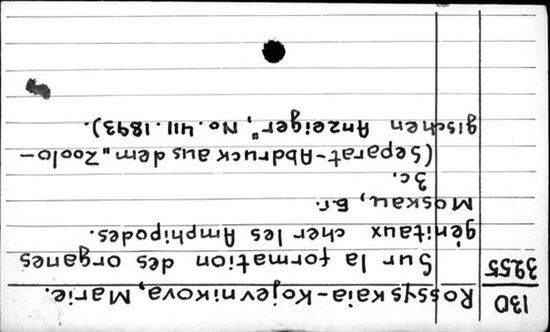 130
3255
Rossyskaia-Kojevnikova, Marie.
Sur la formation des organes
génitaux cher les Amphipodes.
Moskau, б.г.
3c.
(Separat-Abdruck aus dem „Zoolo-
gischen Anzeiger", No. 411. 1893).